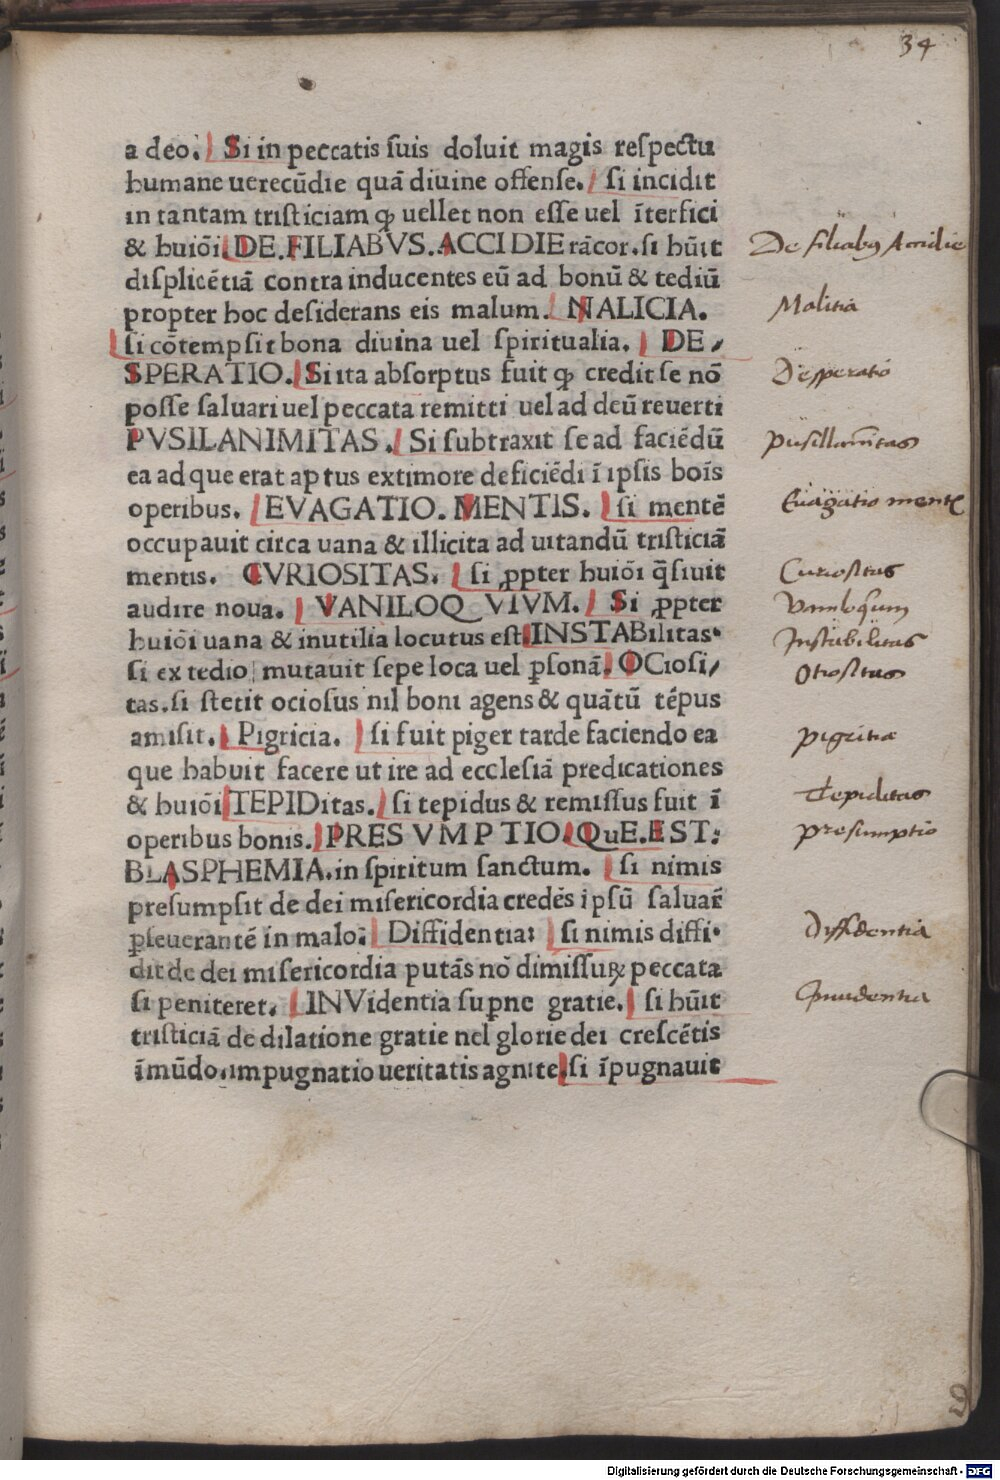 34
a deo. Si in peccatis ſuis doluit magis reſpectu
humane uerecūdie quā diuine offenſe. ſi incidit
in tantam triſticiam ꝙ uellet non eſſe uel īterfici
& huiōi. DE. FILIABVS. ACCIDIE rācor. ſi hūit
diſplicētiā contra inducentes eū ad bonū & tediū
propter hoc deſiderans eis malum. NALICIA.
ſi cōtempſit bona diuina uel ſpiritualia. DE,
SPERATIO. Si ita abſorptus fuit ꝙ credit ſe nō
poſſe ſaluari uel peccata remitti uel ad deū reuerti
PVSILANIMITAS. Si ſubtraxit ſe ad faciēdū
ea ad que erat aptus ex timore deficiēdi ī ipſis boīs
operibus. EVAGATIO. MENTIS. ſi mentē
occupauit circa uana & illicita ad uitandū triſticiā
mentis. CVRIOSITAS. ſi ꝓpter huiōi q̄ſiuit
audire noua. VANILOQVIVM. Si ꝓpter
huiōi uana & inutilia locutus eſt. INSTABilitas.
ſi ex tedio mutauit ſepe loca uel ꝑſonā. OCioſi,
tas. ſi ſtetit ocioſus nil boni agens & quātū tēpus
amiſit. Pigricia. ſi fuit piger tarde faciendo ea
que habuit facere ut ire ad eccleſiā predicationes
& huiōi TEPIDitas. ſi tepidus & remiſſus fuit ī
operibus bonis. PRESVMPTIO. QuE. EST:
BLASPHEMIA. in ſpiritum ſanctum. ſi nimis
preſumpſit de dei miſericordia credēs ipſū ſaluar̄
ꝑſeuerantē in malo: Diffidentia: ſi nimis diffi.
dit de dei miſericordia putās nō dimiſſuꝝ peccata
ſi peniteret. INVidentia ſuꝑne gratie. ſi hūit
triſticiā de dilatione gratie nel glorie dei creſcētis
īmūdo. impugnatio ueritatis agnite. ſi īpugnauit
De filiabꝰ Accidie
Malitia
Desperatio
pusillanimitas
Euagatio mentis
Curiositas
Vaniloquium
Instabilitas
Otiositas
pigritia
Tepiditas
presumptio
Diffidentia
Inuidentia
Digitalisierung gefördert durch die Deutsche Forschungsgemeinschaft - DFG